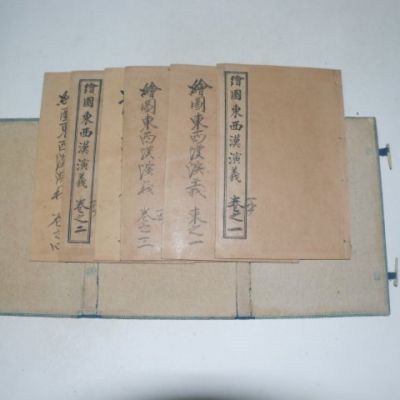 繪圖東西漢演義 卷之一
繪圖東西漢演義 東之一
繪圖東西漢演義 卷之三
繪圖東西漢演義 卷之二
東西漢演義 卷之